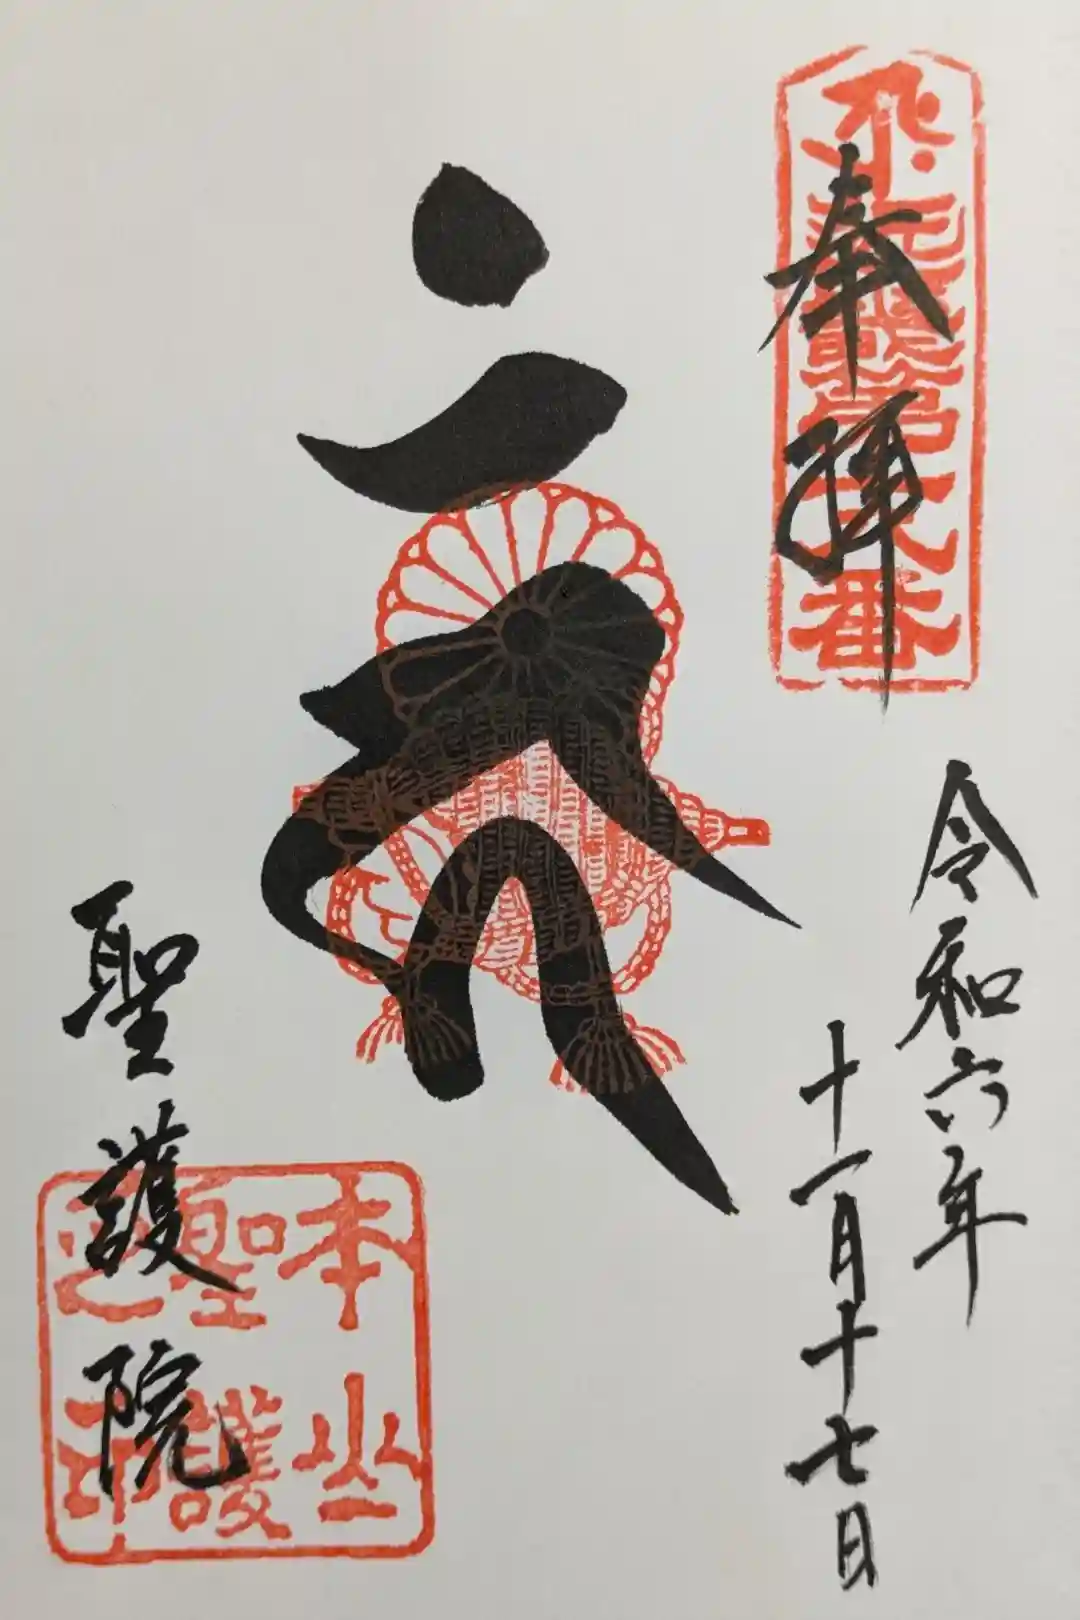 奉拝
令和六年
十一月十七日
聖護院
本山
聖護
之印